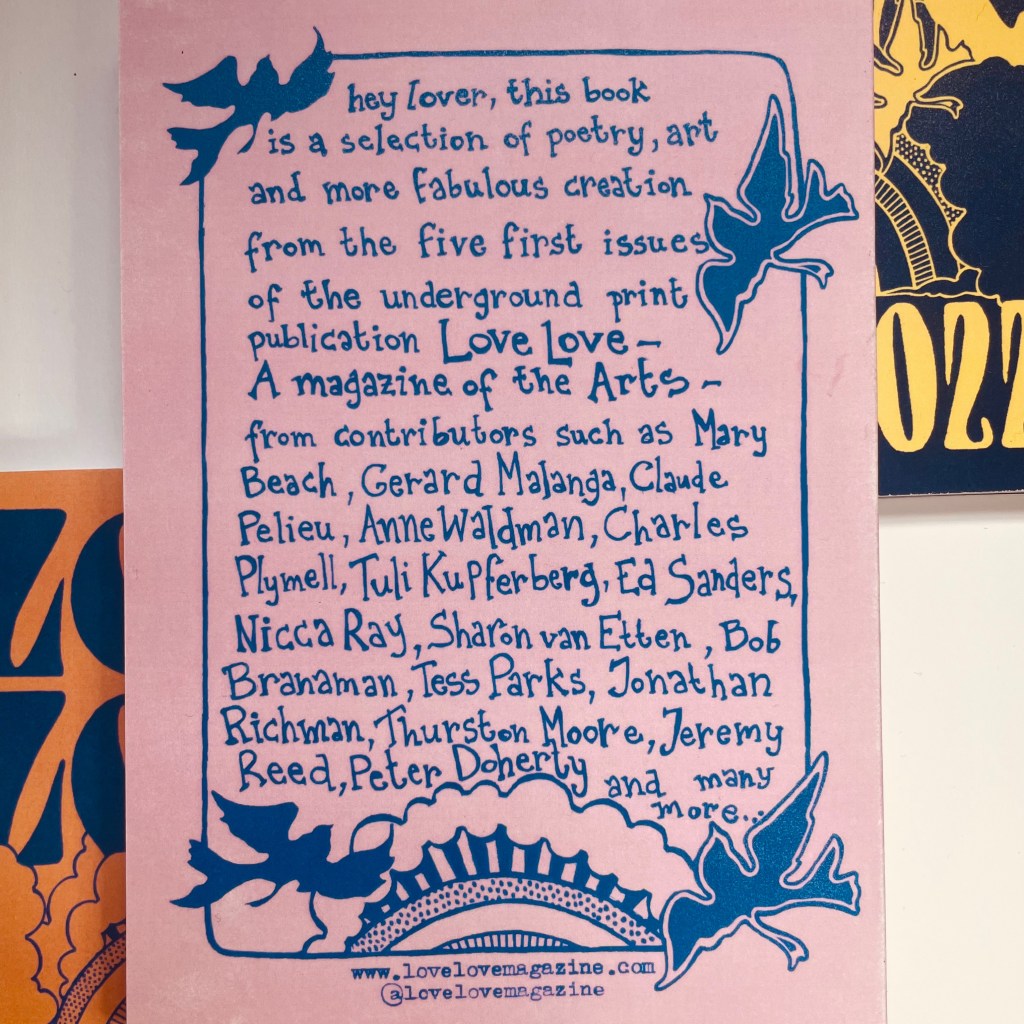 hey lover, this book
is a selection of poetry, art
and more fabulous creation
from the five first issues
of the underground print
publication Love Love –
A magazine of the Arts –
from contributors such as Mary
Beach, Gerard Malanga, Claude
Pelieu, Anne Waldman, Charles
Plymell, Tuli Kupferberg, Ed Sanders,
Nicca Ray, Sharon van Etten, Bob
Branaman, Tess Parks, Jonathan
Richman, Thurston Moore, Jeremy
Reed, Peter Doherty and many
more...
www.lovelovemagazine.com
@lovelovemagazine
022